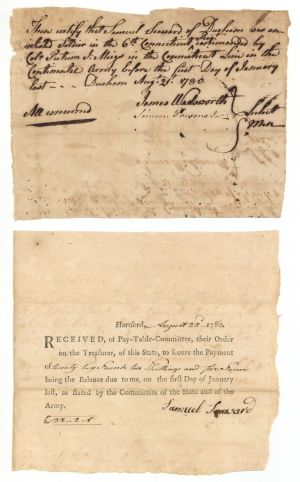 These certify that Samuel Seaward of Durham was an
inlisted Soldier in the 6th Connecticut Regt commanded by
Colo Return J. Meigs in the Connecticut Line in the
Continental Army before the first Day of January
last - - - Durham Augt 21st 1780.
James Wadsworth
Simeon Parsons Jr
Select
Men
All concerned
Hartford, August 23d 1780.
RECEIVED, of Pay-Table-Committee, their Order
on the Treasurer, of this State, to secure the Payment
of twenty two Pounds two Shillings and
being the Balance due to me, on the first Day of January
last, as stated by the Committees of the State and of the
Army.
Samuel Seaward
£22-2-5